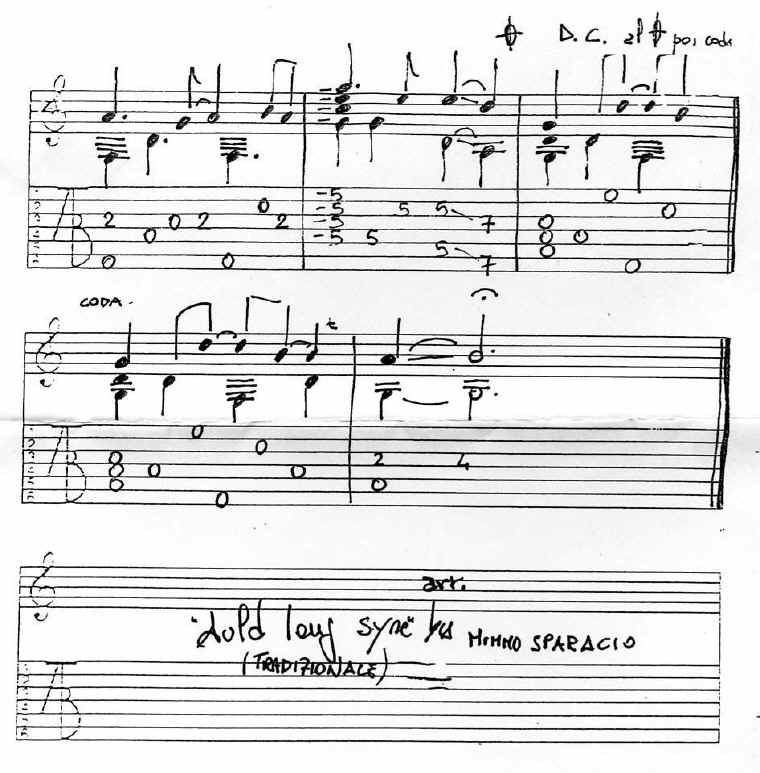 D.C. al 𝄌 poi coda
TAB
2 0 0 2 0 2 0 0
5 5 5 5 5 5 5 5 7 7
0 0 0 0 0 0 0
CODA.
TAB
0 0 0 0 0 0 0 0
2 0 4
arr.
"Auld lang syne" by MIMMO SPARACIO
(TRADIZIONALE)
TAB